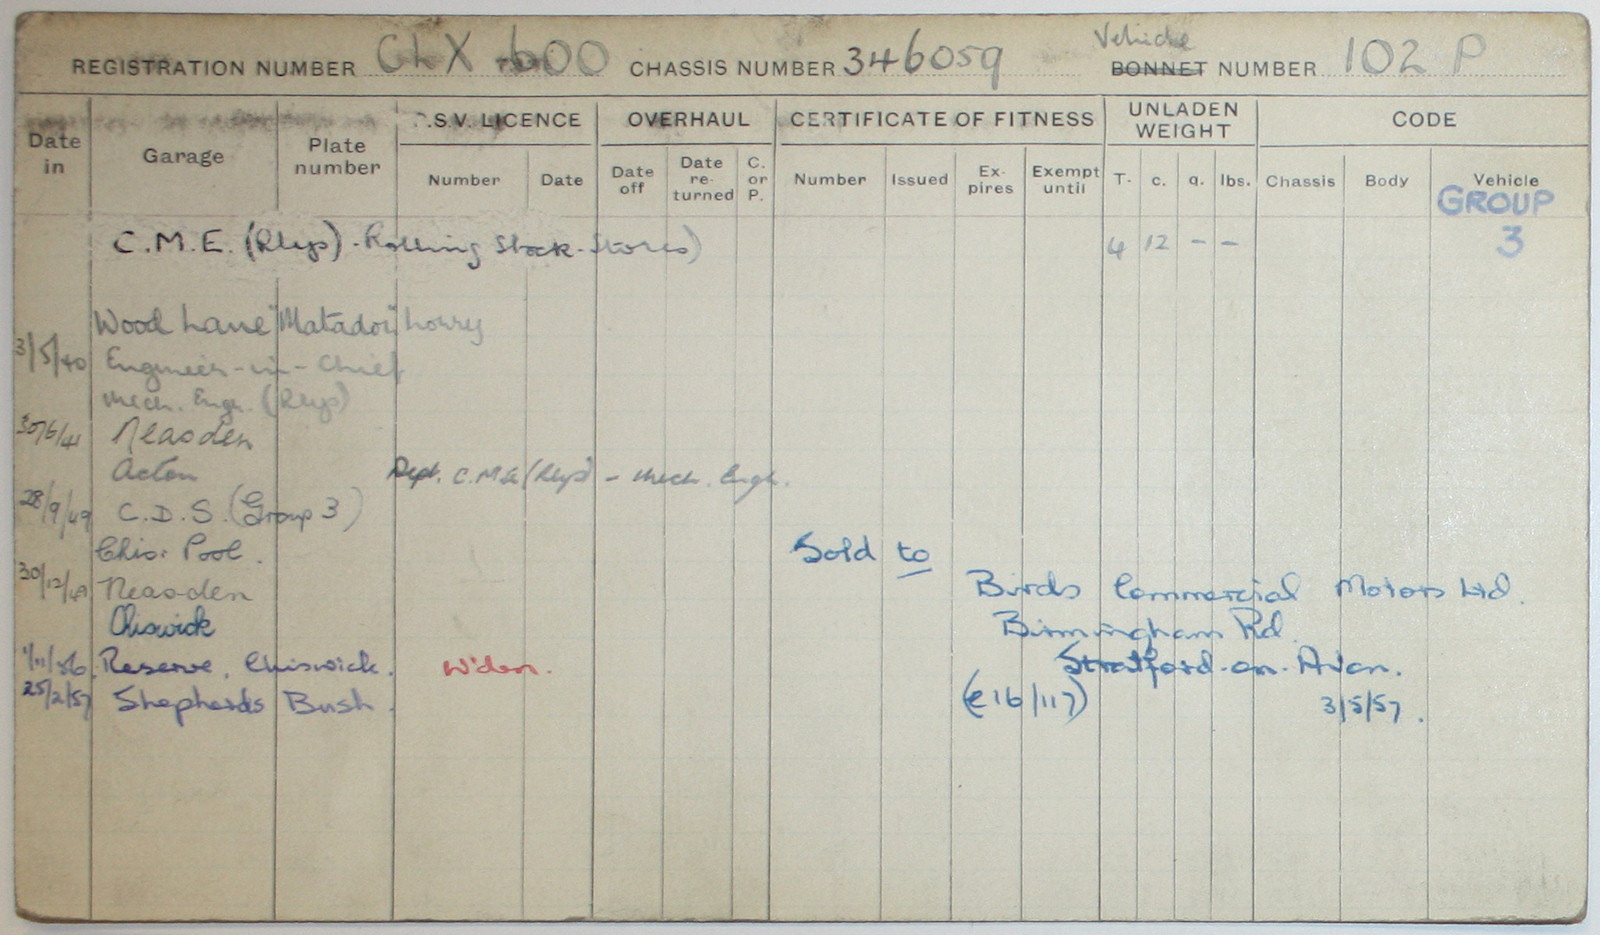 Vehicle
REGISTRATION NUMBER CLX 600 CHASSIS NUMBER 346059 BONNET NUMBER 102 P
Date in Garage Plate number P.S.V. LICENCE OVERHAUL CERTIFICATE OF FITNESS UNLADEN WEIGHT CODE
Number Date Date off Date re-turned C. or P. Number Issued Ex-pires Exempt until T. c. q. lbs. Chassis Body Vehicle
GROUP 3
C.M.E. (Rlys) - Rolling Stock - Stores) 4 12 - -
Wood Lane "Matador" Lorry
3/5/40 Engineer-in-Chief
Mech. Engr. (Rlys)
30/6/41 Neasden
Acton Dept. C.M.E (Rlys) - Mech. Engr.
28/9/49 C.D.S. (Group 3)
Chis. Pool. Sold to
30/12/49 Neasden Birds Commercial Motors Ltd.
Chiswick Birmingham Rd.
1/11/56 Reserve, Chiswick. W'den. Stratford-on-Avon.
25/2/57 Shepherds Bush. (e16/117) 3/5/57.